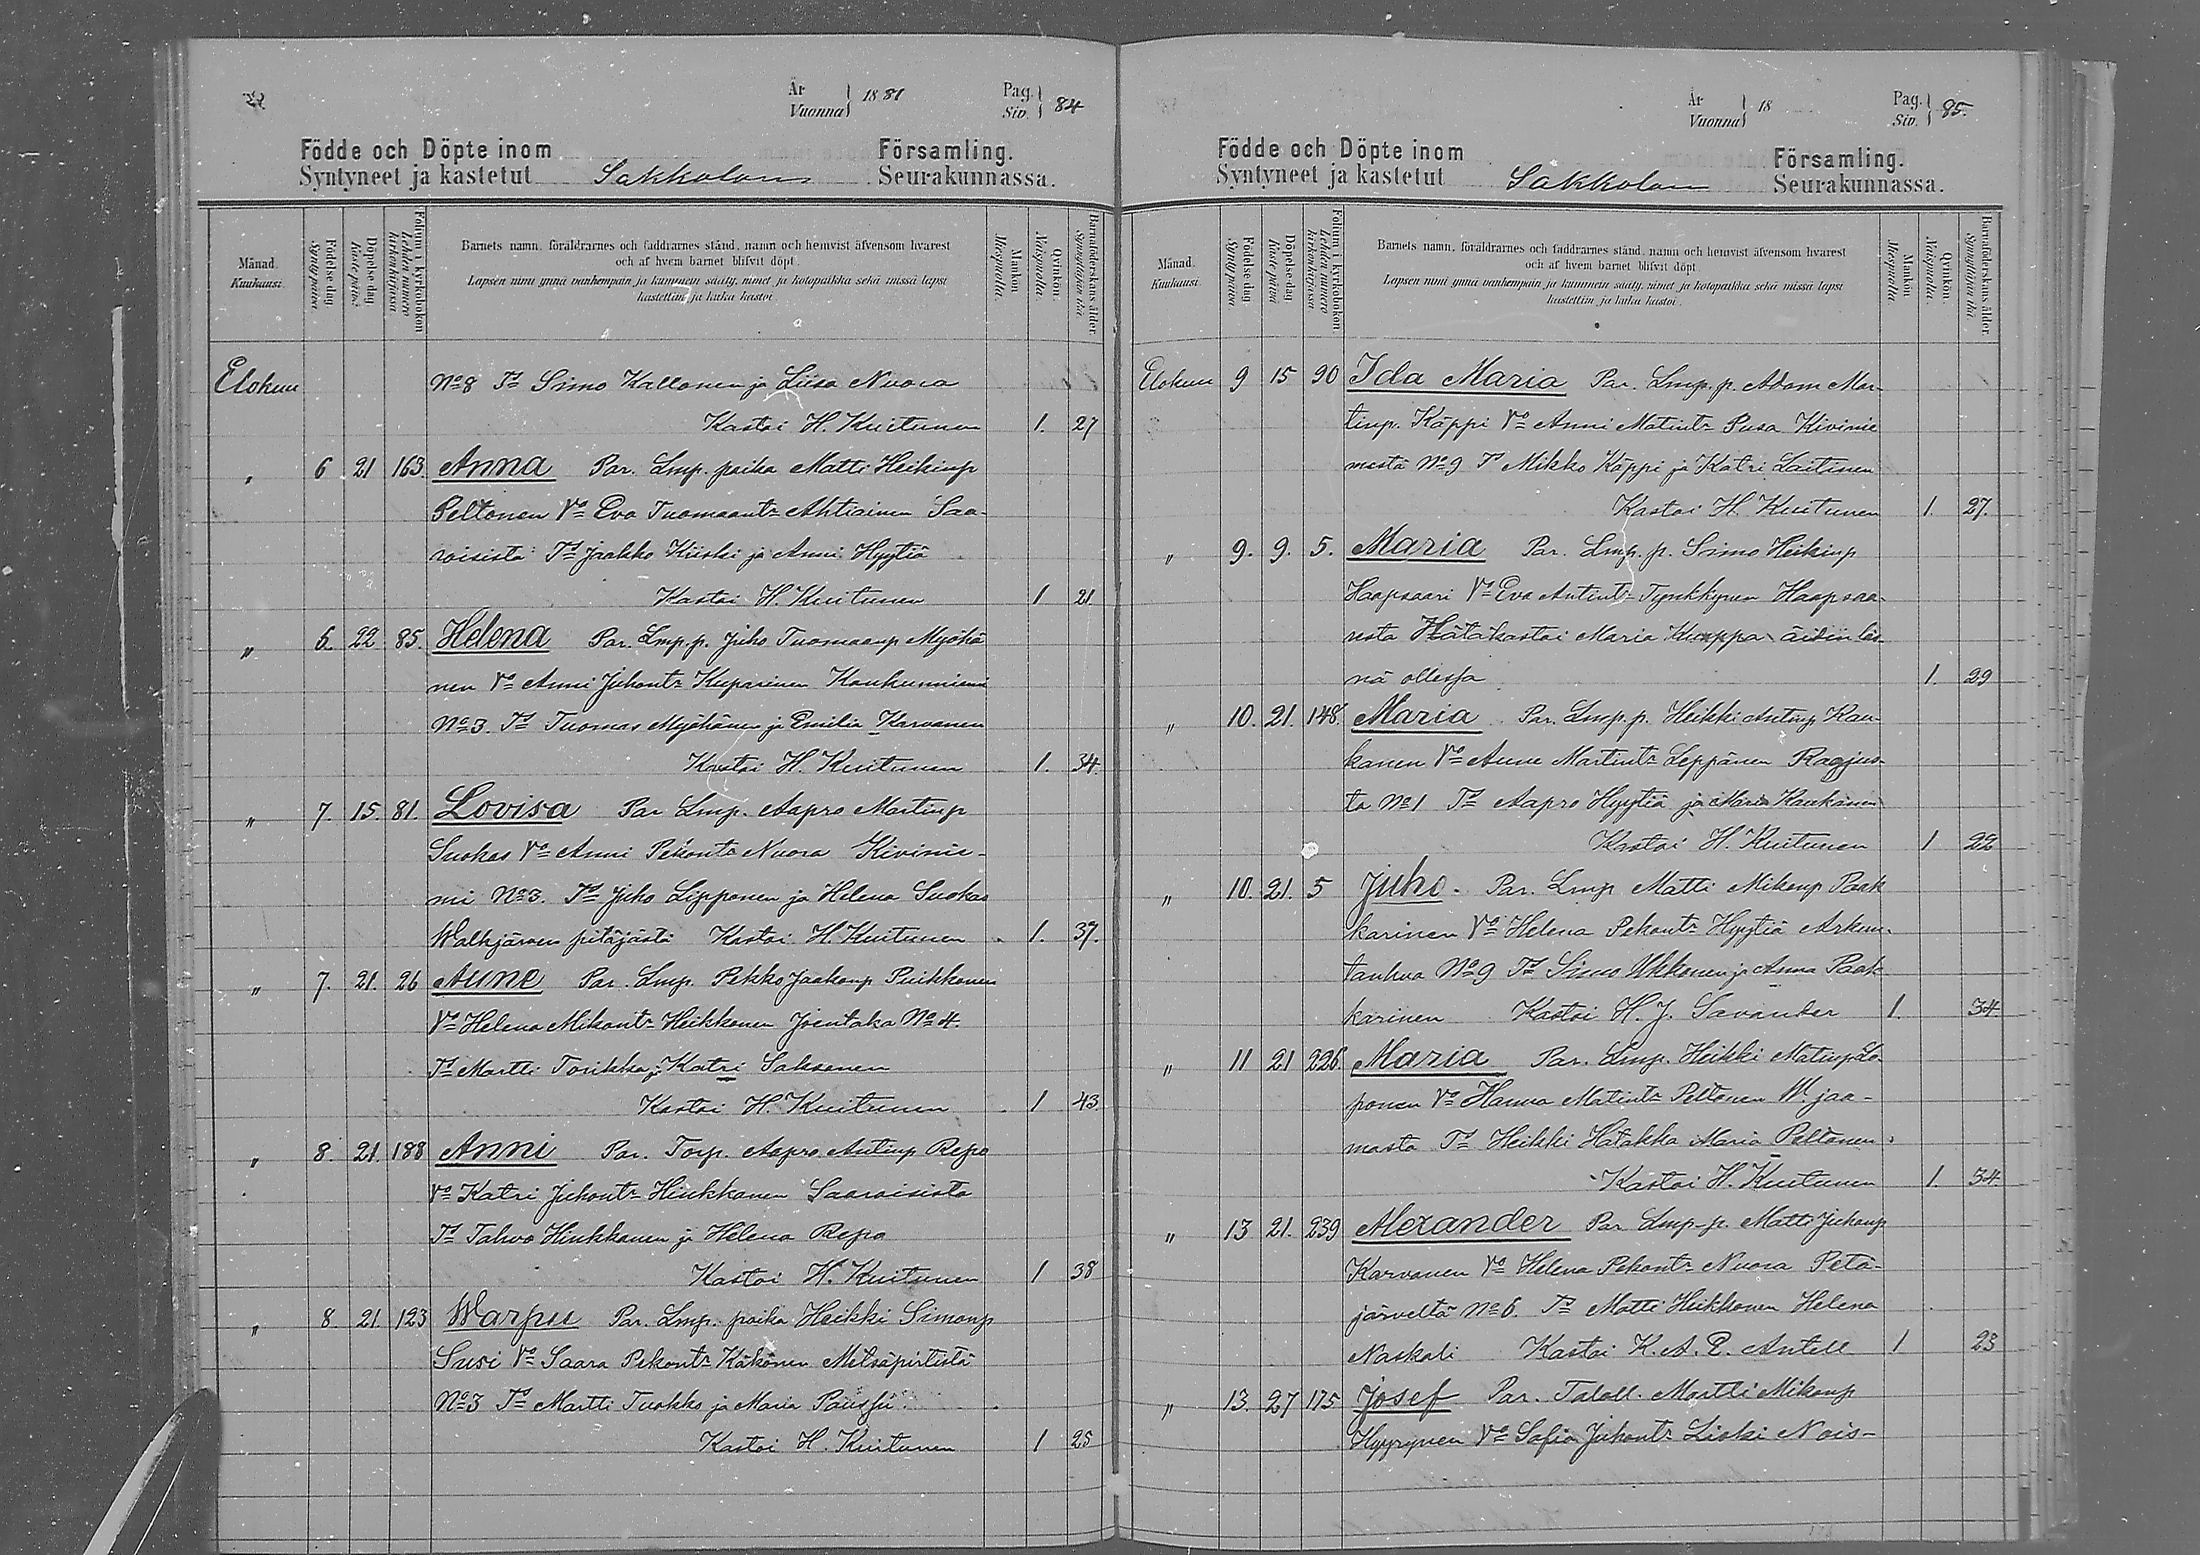 År
Vuonna } 1881
Pag.
Siv. } 84
Födde och Döpte inom Församling.
Syntyneet ja kastetut Sakkolan Seurakunnassa.
Månad. Kuukausi.
Födelsedag Syntypäivä
Döpelsedag Kastepäivä
Folium i kyrkoboken Lehden numero kirkonkirjassa
Barnets namn, föräldrarnes och faddrarnes stånd, namn och hemvist äfvensom hvarest
och af hvem barnet blifvit döpt.
Lapsen nimi ynnä vanhempain ja kummein sääty, nimet ja kotopaikka sekä missä lapsi
kastettiin ja kuka kastoi.
Mankön Miespuolia
Qvinkön Naispuolia
Barnaföderskans ålder
Elokuu No 8 Ts Simo Kallonen ja Liisa Nuora
Kastoi H. Kuitunen 1. 27
" 6 21 163. Anna Par. Lmp. poika Matti Heikinp
Peltonen Vo Eva Tuomaantr Ahtiainen Saa-
roisista Ts Jaakko Kiiski ja Anni Hyytiä
Kastoi H. Kuitunen 1 21
" 6. 22 85. Helena Par. Lmp. p. Juho Tuomaanp Myöhä
nen Vo Anni Juhontr Kuparinen Haukunniemi
No 3. Ts Tuomas Myöhänen ja Emilia Karvanen
Kastoi H. Kuitunen 1. 34.
" 7. 15. 81. Lovisa Par Lmp. Aapro Martinp
Suokas Vo Anni Pekontr Nuora Kivinie-
mi No 3. Ts Juho Lipponen ja Helena Suokas
Walkjärven pitäjästä Kastoi H. Kuitunen 1. 37.
" 7. 21. 26 Aune Par. Lmp. Pekko Jaakonp Puikkonen
Vo Helena Mikontr Heikkonen Joentaka No 4.
Ts Martti Torikka ja Katri Saksonen
Kastoi H. Kuitunen 1 43
" 8. 21. 188 Anni Par. Torp. Aapro Antinp Repo
Vo Katri Juhontr Hinkkanen Saaroisista
Ts Tahvo Hinkkanen ja Helena Repo
Kastoi H. Kuitunen 1 38
" 8. 21. 123 Warpu Par. Lmp. poika Heikki Simonp
Susi Vo Saara Pekontr Käkönen Metsäpirtistä
No 3 Ts Martti Tuokko ja Maria
Kastoi H. Kuitunen 1 25
År
Vuonna } 18
Pag.
Siv. } 85.
Födde och Döpte inom Församling.
Syntyneet ja kastetut Sakkolan Seurakunnassa.
Månad. Kuukausi.
Födelsedag Syntypäivä
Döpelsedag Kastepäivä
Folium i kyrkoboken Lehden numero kirkonkirjassa
Barnets namn, föräldrarnes och faddrarnes stånd, namn och hemvist äfvensom hvarest
och af hvem barnet blifvit döpt.
Lapsen nimi ynnä vanhempain ja kummein sääty, nimet ja kotopaikka sekä missä lapsi
kastettiin ja kuka kastoi.
Mankön Miespuolia
Qvinkön Naispuolia
Barnaföderskans ålder
Elokuu 9 15 90 Ida Maria Par. Lmp. p. Adam Mar-
tinp. Käppi Vo Anni Matintr Pusa Kivinie
mestä No 9 Ts Mikko Käppi ja Katri Laitinen
Kastoi H. Kuitunen 1. 27.
" 9. 9. 5. Maria Par. Lmp. p. Simo Heikinp
Haapsaari Vo Eva Antintr Tynkkynen Haapsaa-
resta Hätäkastoi Maria Kumppa äidin läs
nä ollessa 1. 29
" 10. 21. 148. Maria Par. Lmp. p. Heikki Antinp Kau-
kanen Vo Anne Martintr Leppänen Rapjus-
ta No 1 Ts Aapro Hyytiä ja Maria Kaukanen
Kastoi H. Kuitunen 1 22
" 10. 21. 5 Juho. Par. Lmp Matti Mikonp Paak
karinen Vo Helena Pekontr Hyytiä Arkun-
tanhua No 9 Ts Simo Ukkonen ja Anna Paak
karinen Kastoi H. J. Savander 1. 34
" 11 21 226. Maria Par. Lmp. Heikki Matinp Lo
ponen Vo Hanna Matintr Peltonen W jaa-
masta Ts Heikki Hatakka Maria Peltonen.
Kastoi H. Kuitunen 1. 34
" 13 21. 239 Alexander Par Lmp-p. Matti Juhonp
Karvanen Vo Helena Pekontr Nuora Petä-
järveltä No 6. Ts Matti Heikkonen Helena
Naskali Kastoi K. A. P. Antell 1 23
" 13. 27 175 Josef Par. Taloll. Martti Mikonp
Hyyrynen Vo Sofia Juhontr Liski Nois-